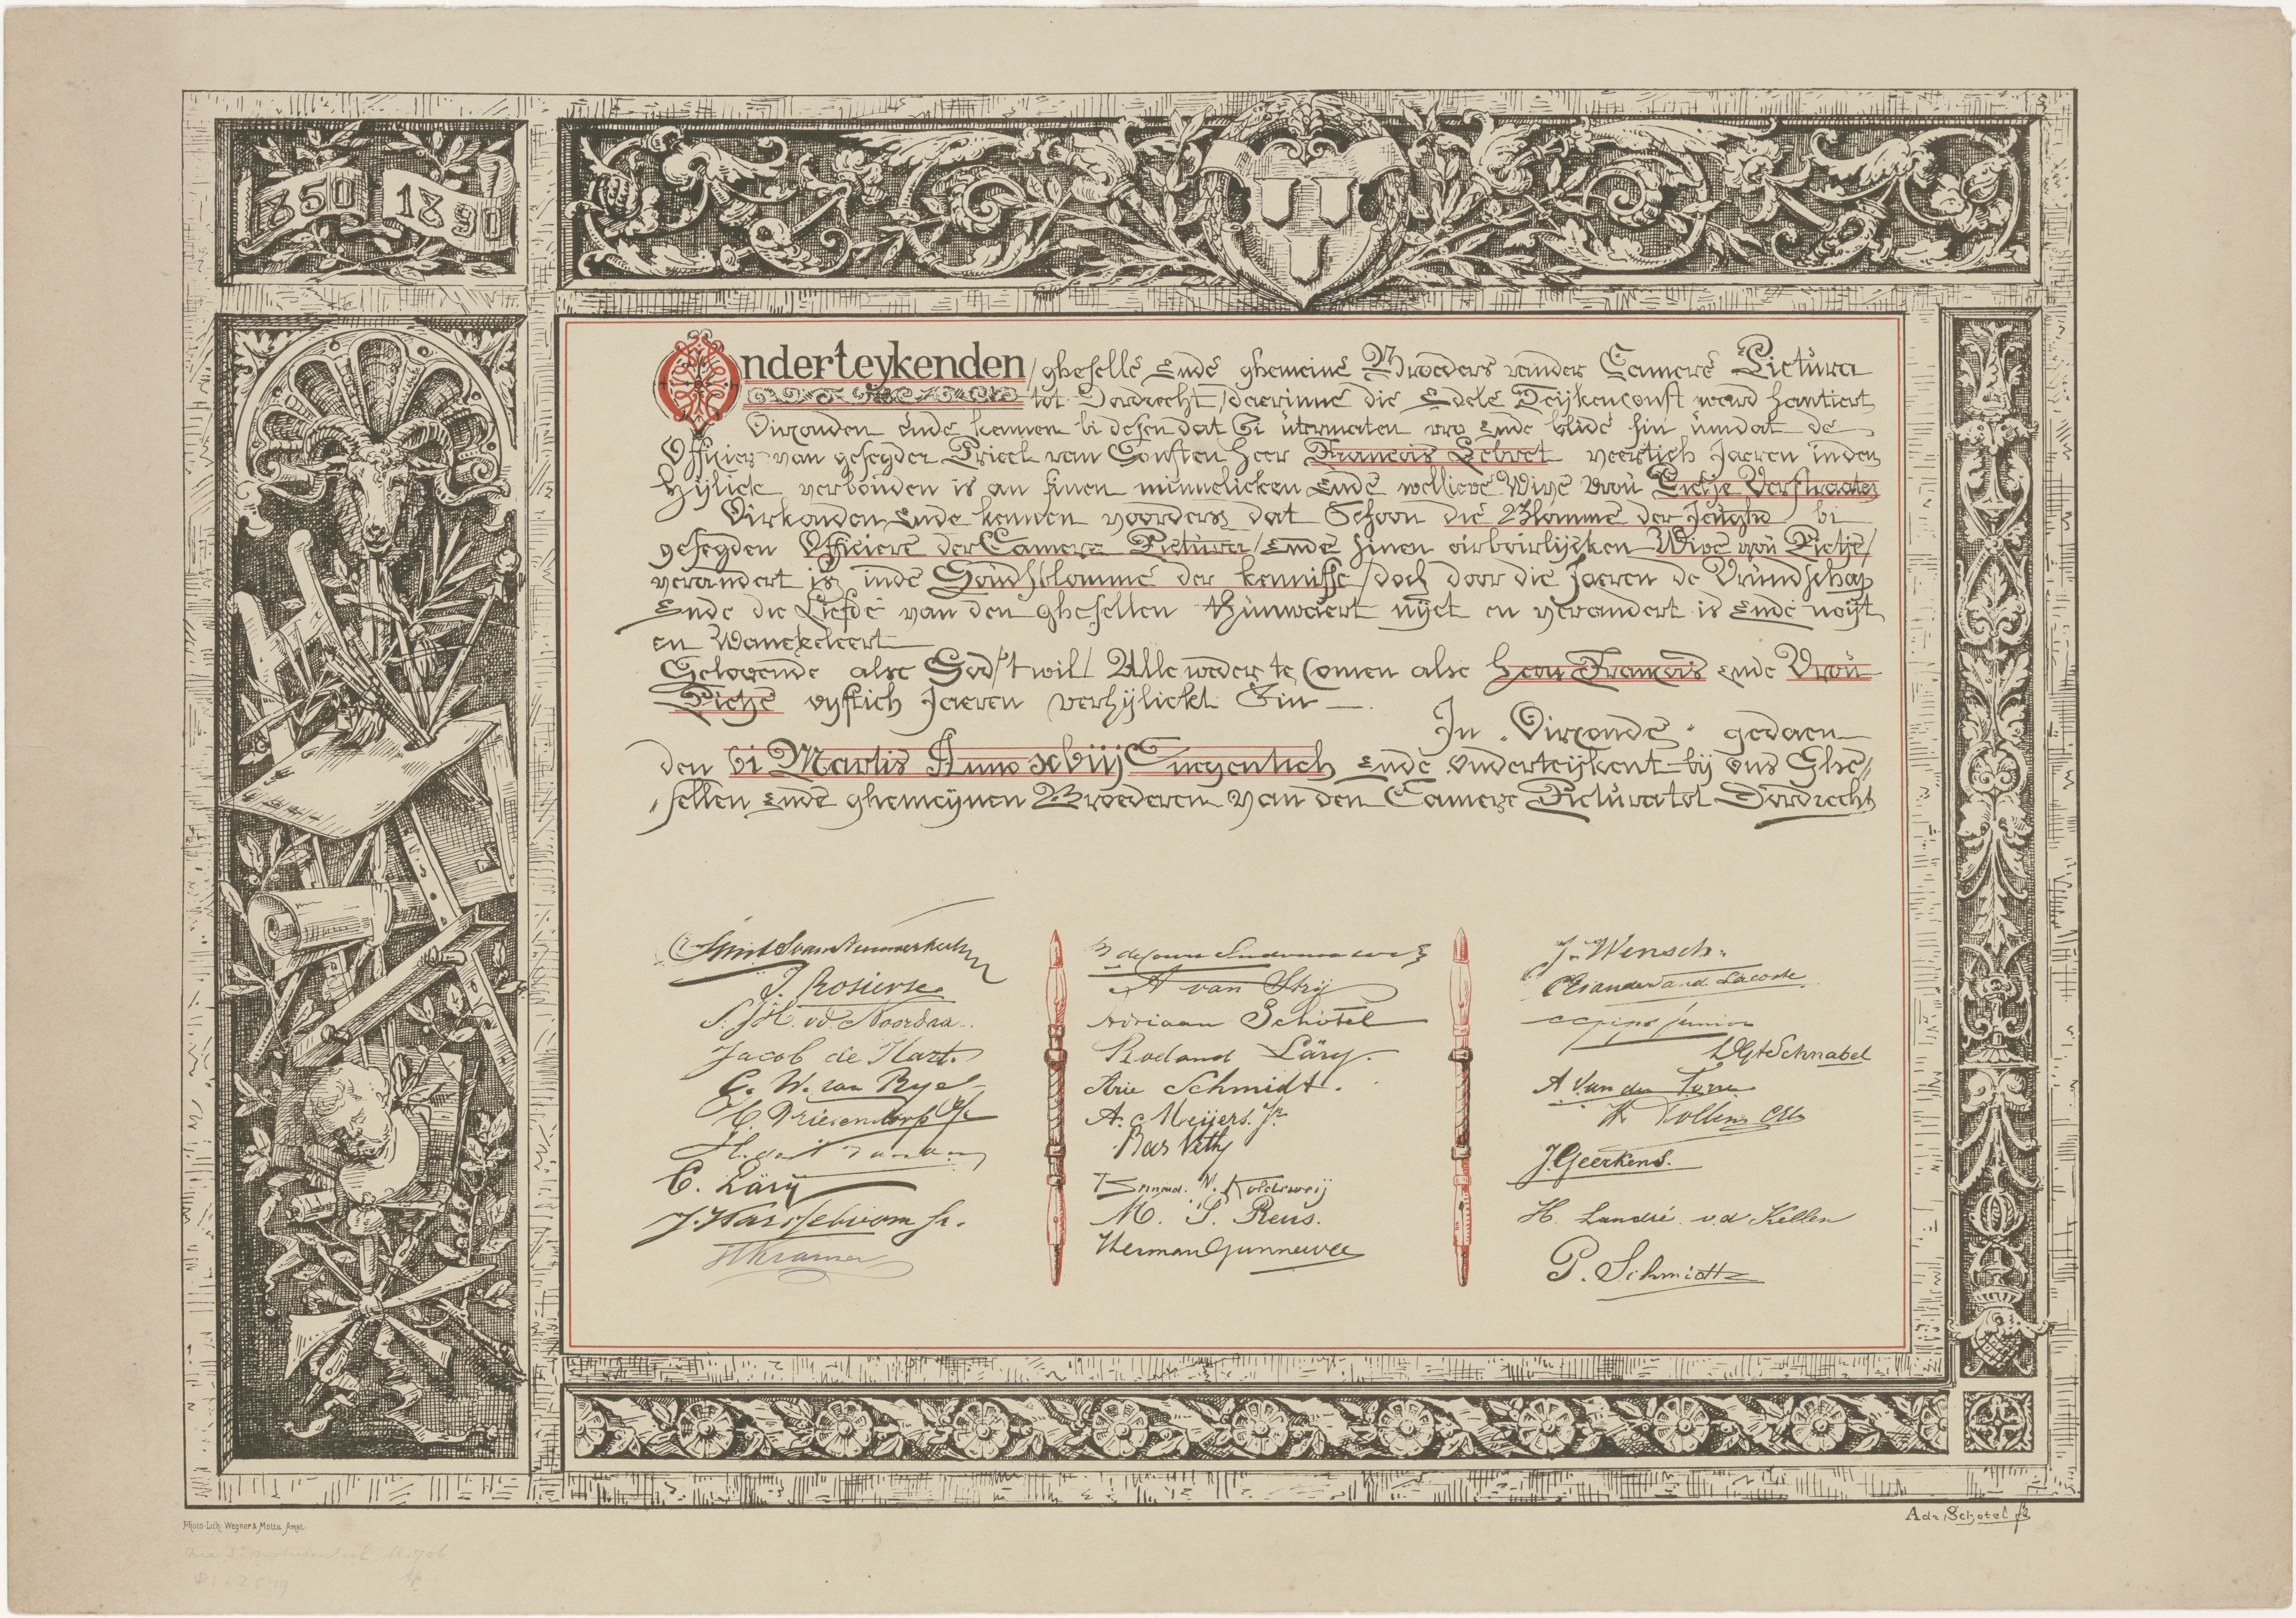 1850 1890
Onderteykenden / ghesellē Endē ghemeinē Broeders vander Camerē Pictura
tot Dordrecht / daerinnē die Edelē Teijkenconst ward hantiert
Oirconden endē kennen bi desen dat Si utermaten vro Ende blidē sin umdat de
Officier van gesegder Prieel van Consten Heer Francois Lebret veertich Jaeren inden
Hijlick verbonden is an sinen minnelicken Endē wellievē Wivē vrou Pietje Verstraaten
Oirkonden Ende kennen voorders dat Schoon die Blommē der Jeught bi
gesegden Officierē der Camerē Pictura / Endē sinen eirbeirlijcken Wivē vrou Pietje /
verandert is indē Goudsblommē der kennissē / doch door die Jaeren de Vrundschap
Ende die Liefdē van den ghesellen thunwaert nijet en verandert is Endē noijt
en Wanckeleert
Gelovende alse God 't wil / Alle weder te Comen alse Heer Francois ende Vrou
Pietje vijftich Jaeren verhijlickt Sin
In Oirconde gedaen
den vi Martis Anno xviij Neegentich Endē Onderteijkent bij ons Ghe/
/sellen Endē ghemeijnen Broederen van den Camere Pictura tot Dordrecht
J. Rosierse
S. J. H. vd. Noordaa
Jacob de Hart.
C. W. van Rijel
H. Vriesendorp
C. Lary
J. Hasselboom Jr.
H Kramer
A van Strij
Adriaan Schotel
Roeland Läry.
Arie Schmidt.
A. Meijers. Jr.
Bas Veth
Koldewij
M. S. Reus.
Herman Gunneweg
J. Wensch
Lacoste
junior
Schnabel
A Van der Torre
H. Tollens
J. Geerkens.
H. Landré. v d Kellen
P. Schmidt
Photo-Lith: Wegner & Mottu Amst.
Adr. Schotel ft